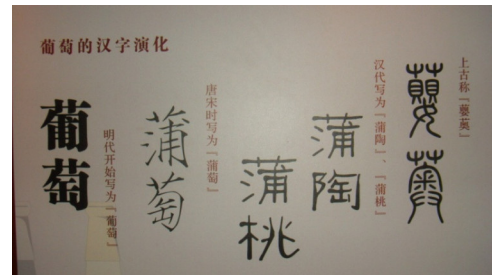 葡萄的汉字演化
上古称「蘡薁」
蘡薁
汉代写为「蒲陶」、「蒲桃」
蒲陶
蒲桃
唐宋时写为「蒲萄」
蒲萄
明代开始写为「葡萄」
葡萄